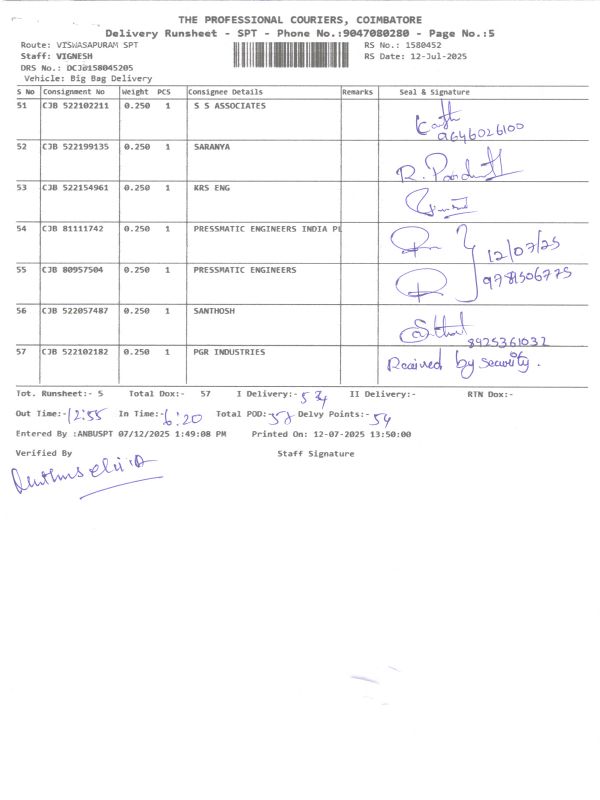 THE PROFESSIONAL COURIERS, COIMBATORE
Delivery Runsheet - SPT - Phone No.:9047080280 - Page No.:5
Route: VISWASAPURAM SPT RS No.: 1580452
Staff: VIGNESH RS Date: 12-Jul-2025
DRS No.: DCJ0158045205
Vehicle: Big Bag Delivery
S No Consignment No Weight PCS Consignee Details Remarks Seal & Signature
51 CJB 522102211 0.250 1 S S ASSOCIATES
9646026100
52 CJB 522199135 0.250 1 SARANYA
53 CJB 522154961 0.250 1 KRS ENG
54 CJB 81111742 0.250 1 PRESSMATIC ENGINEERS INDIA PL
12/07/25
55 CJB 80957504 0.250 1 PRESSMATIC ENGINEERS
56 CJB 522057487 0.250 1 SANTHOSH
8925361032
57 CJB 522102182 0.250 1 PGR INDUSTRIES Received by security.
Tot. Runsheet:- 5 Total Dox:- 57 I Delivery:- II Delivery:- RTN Dox:-
Out Time:- 12:55 In Time:- 6:20 Total POD:- Delvy Points:- 54
Entered By :ANBUSPT 07/12/2025 1:49:08 PM Printed On: 12-07-2025 13:50:00
Verified By Staff Signature